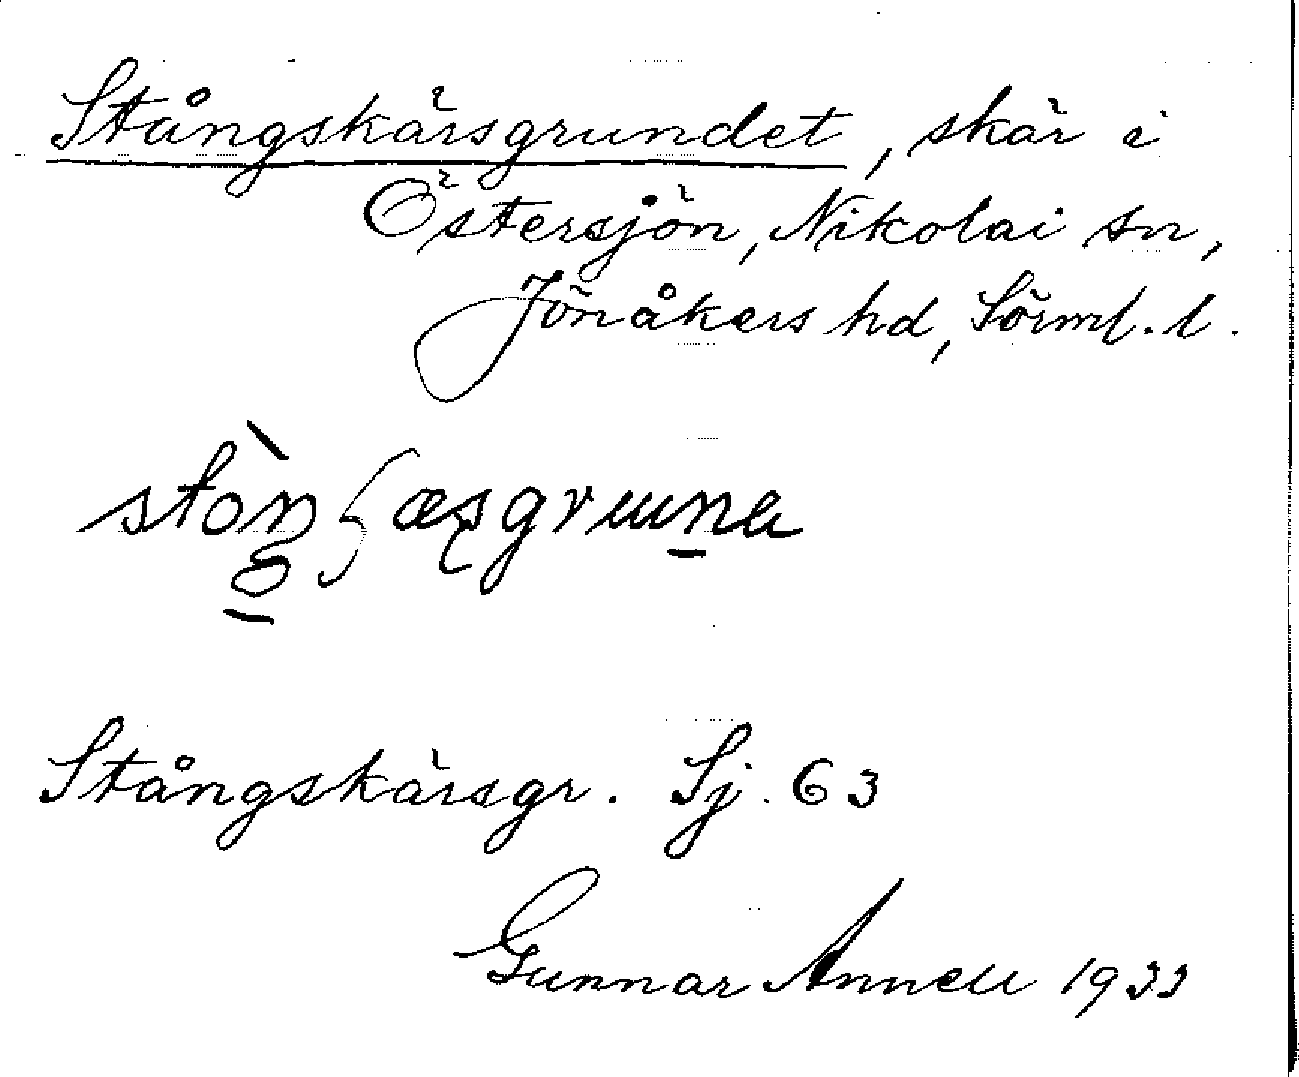 Stångskärsgrundet, skär i
Östersjön, Nikolai sn,
Jönåkers hd, Sörml. l.
Stångskärsgr. Sj. 63
Gunnar Annell 1933